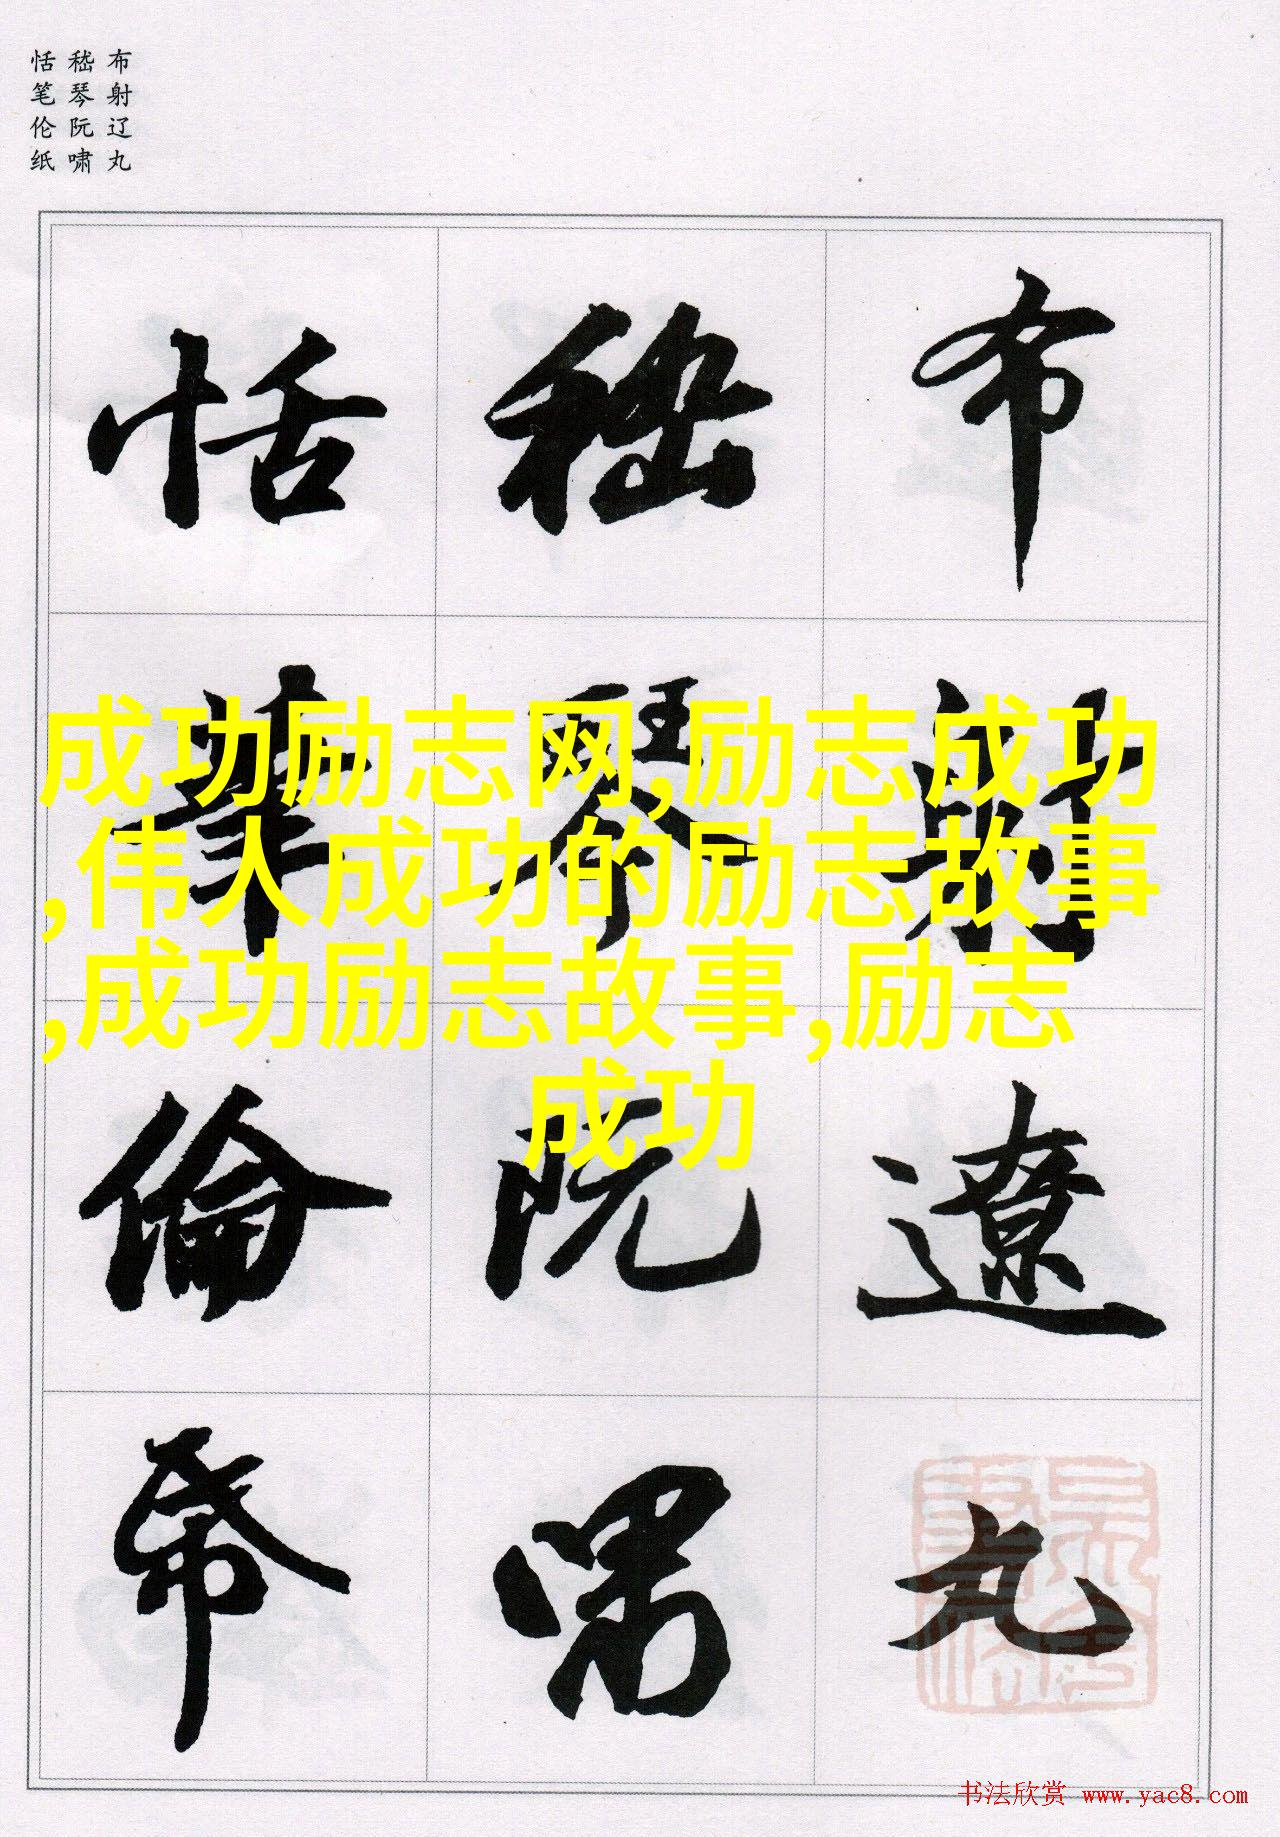 布射辽丸
嵇琴阮啸
恬笔伦纸
布射遼丸
嵇琴阮嘯
恬筆倫帋
成功励志网,励志成功
,伟人成功的励志故事
,成功励志故事,励志
成功
书法欣赏 www.yac8.com